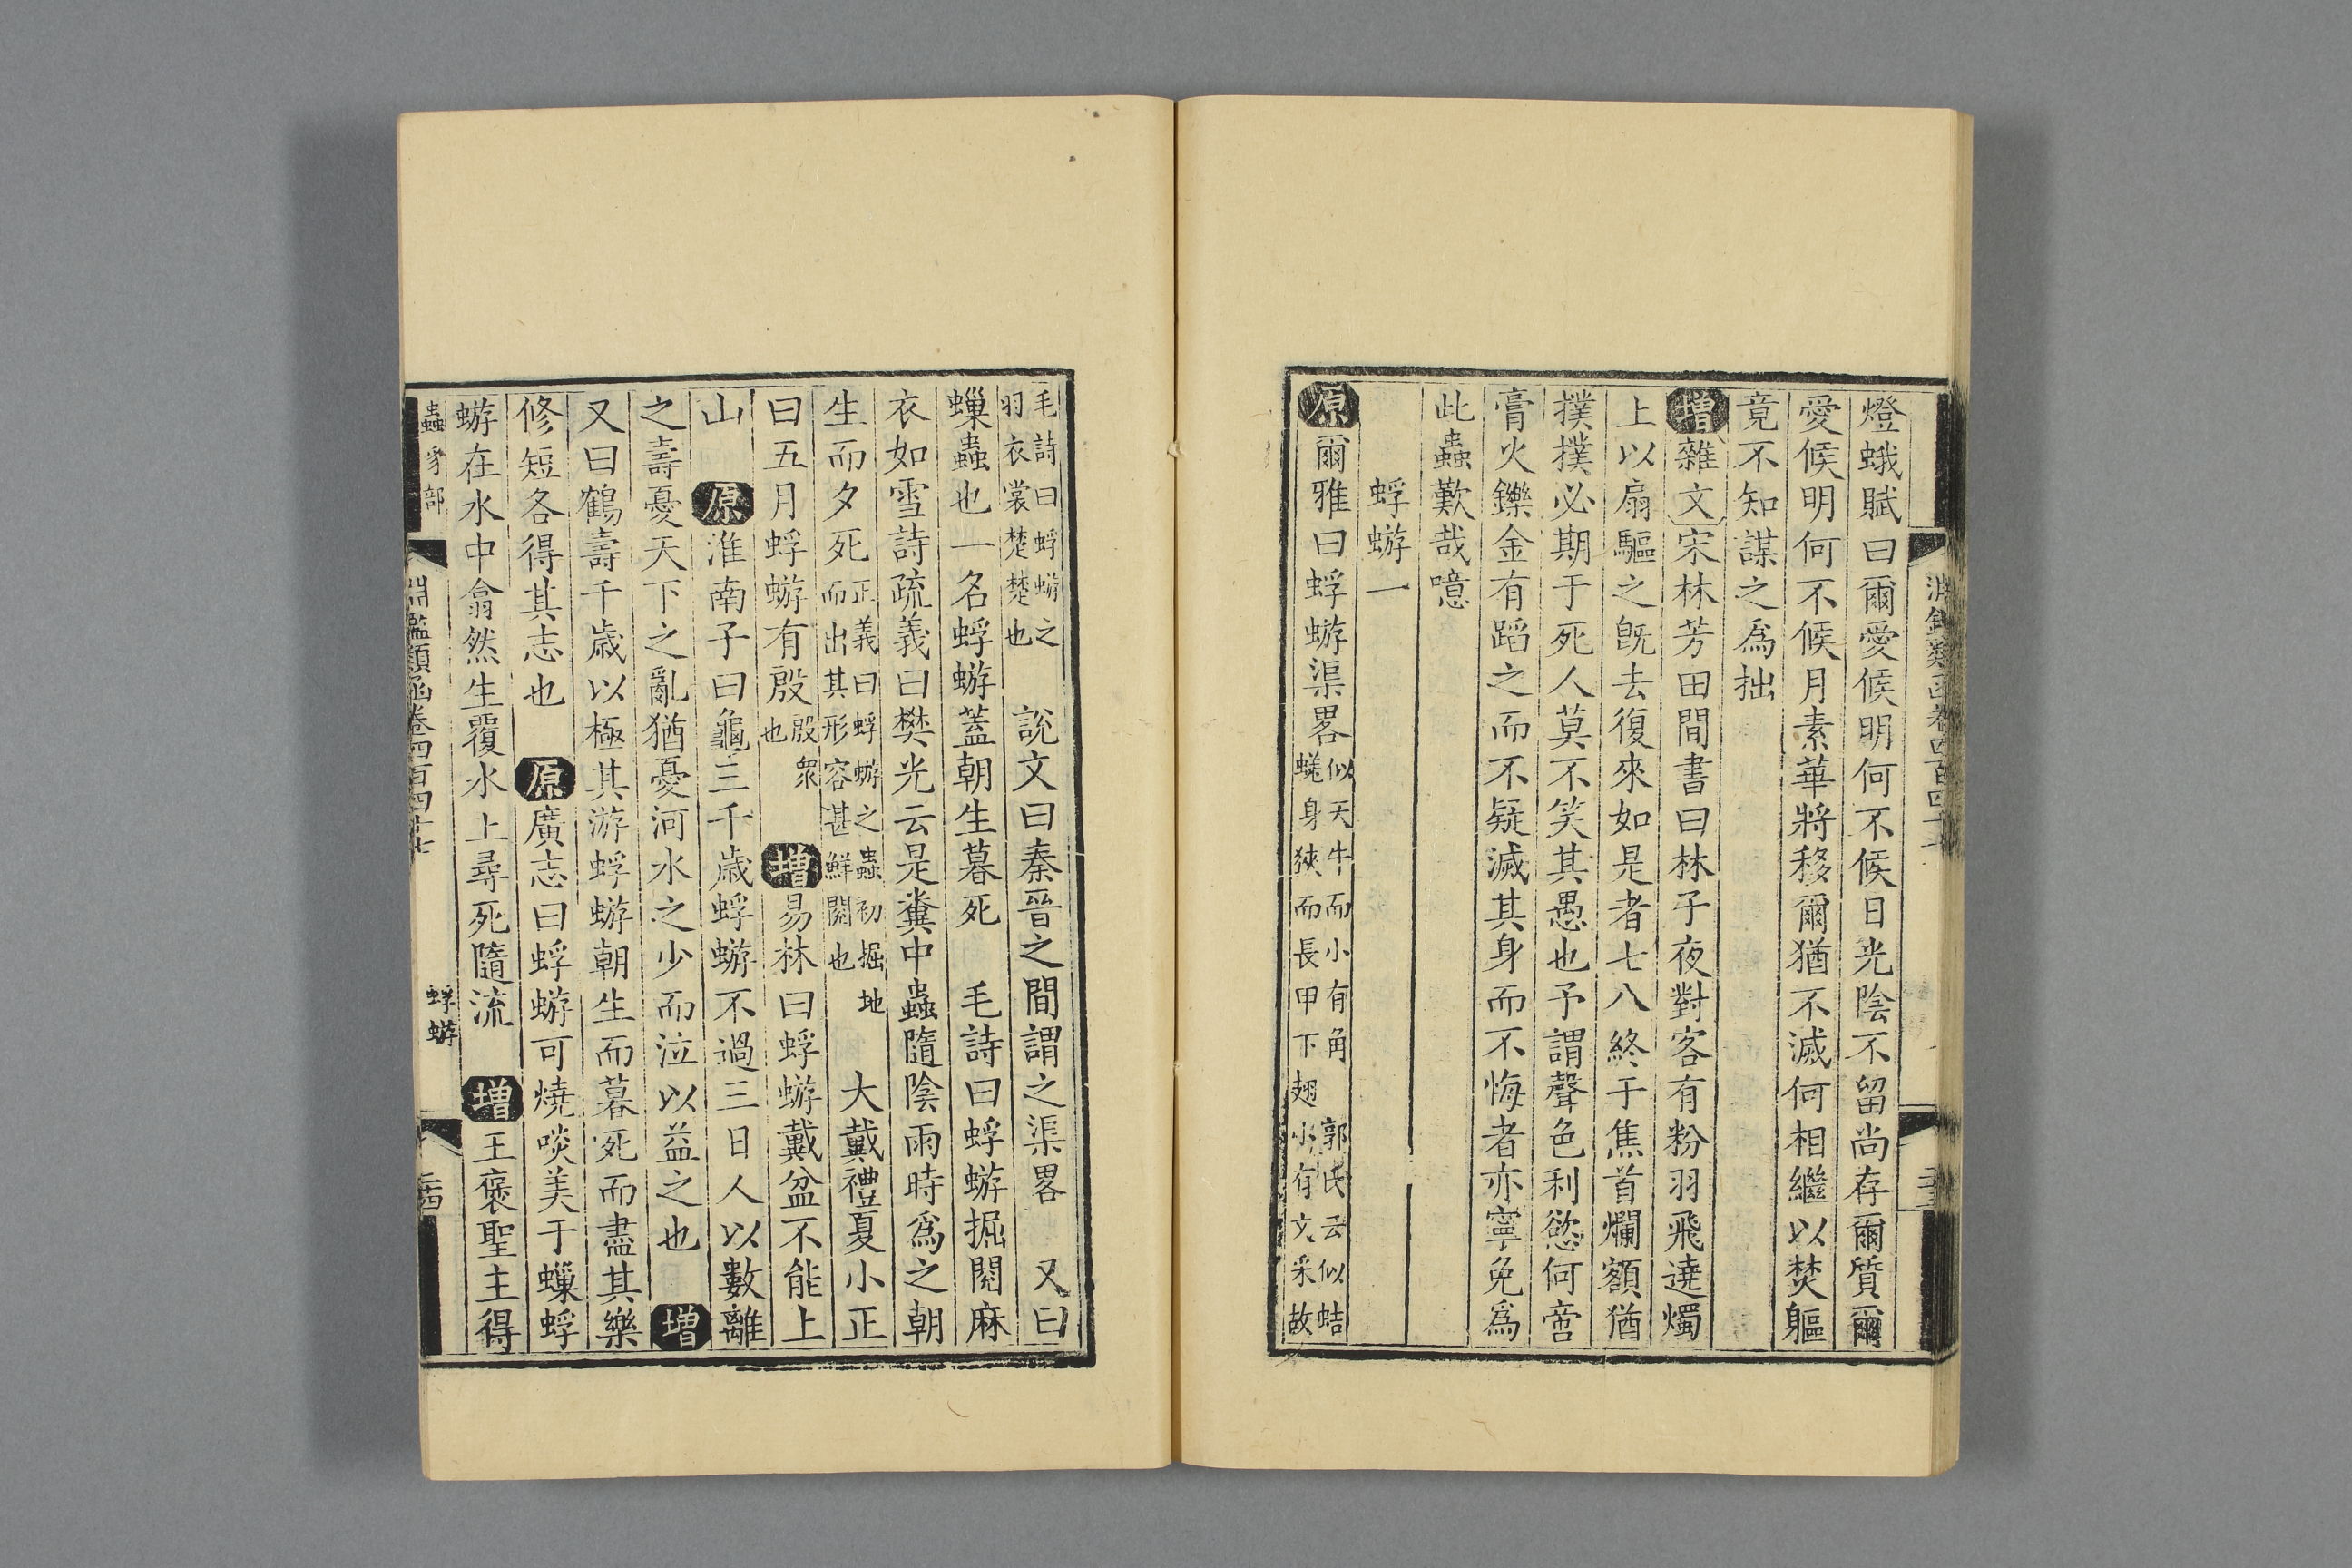 燈蛾賦曰爾愛候明何不候日光陰不留尚存爾質爾
愛候明何不候月素華將移爾猶不滅何相繼以焚軀
竟不知謀之爲拙
增雜文宋林芳田間書曰林子夜對客有粉羽飛遶燭
上以扇驅之旣去復來如是者七八終于焦首爛額猶
撲撲必期于死人莫不笑其愚也予謂聲色利慾何啻
膏火鑠金有蹈之而不疑滅其身而不悔者亦寧免爲
此蟲歎哉噫
蜉蝣一
原爾雅曰蜉蝣渠畧似天牛而小有角
蟯身狹而長甲下翅
郭氏云似蛣
小有文采故
毛詩曰蜉蝣之
羽衣裳楚楚也
說文曰秦晉之間謂之渠畧 又曰
蠅蟲也一名蜉蝣蓋朝生暮死 毛詩曰蜉蝣掘閱麻
衣如雪詩疏義曰樊光云是糞中蟲隨陰雨時爲之朝
生而夕死正義曰蜉蝣之蟲初掘地
而出其形容甚鮮閱也
大戴禮夏小正
曰五月蜉蝣有殷殷衆
也
增易林曰蜉蝣戴盆不能上
山 原淮南子曰龜三千歲蜉蝣不過三日人以數離
之壽憂天下之亂猶憂河水之少而泣以益之也 增
又曰鶴壽千歲以極其游蜉蝣朝生而暮死而盡其樂
修短各得其志也 原廣志曰蜉蝣可燒啖美于蠅蜉
蝣在水中翕然生覆水上尋死隨流 增王襃聖主得
蟲豸部
淵鑑類函卷四百四十七
蜉蝣